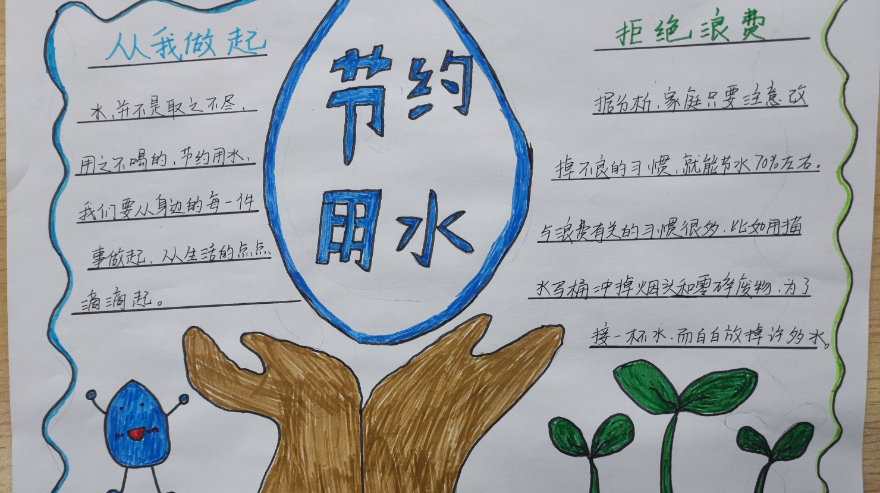 从我做起
水,并不是取之不尽,
用之不喝的,节约用水,
我们要从身边的每一件
事做起,从生活的点点
滴滴起。
节约
用水
拒绝浪费
据分析,家庭只要注意改
掉不良的习惯,就能节水70%左右。
与浪费有关的习惯很多,比如用抽
水马桶冲掉烟头和零碎废物,为了
接一杯水,而白白放掉许多水。